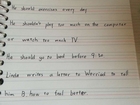 He should exercises every day
He shouldn't play too much on the computer
or watch too much TV.
He should go to bed before 9
Linda writes a letter to Warried to tell
him how to feel better.